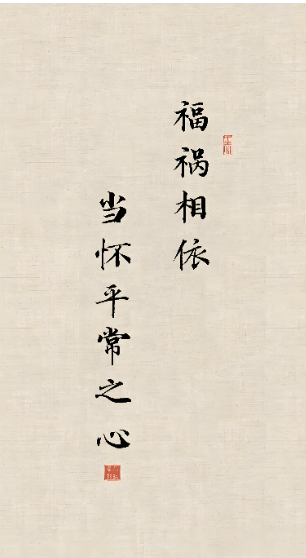 福祸相依
当怀平常之心